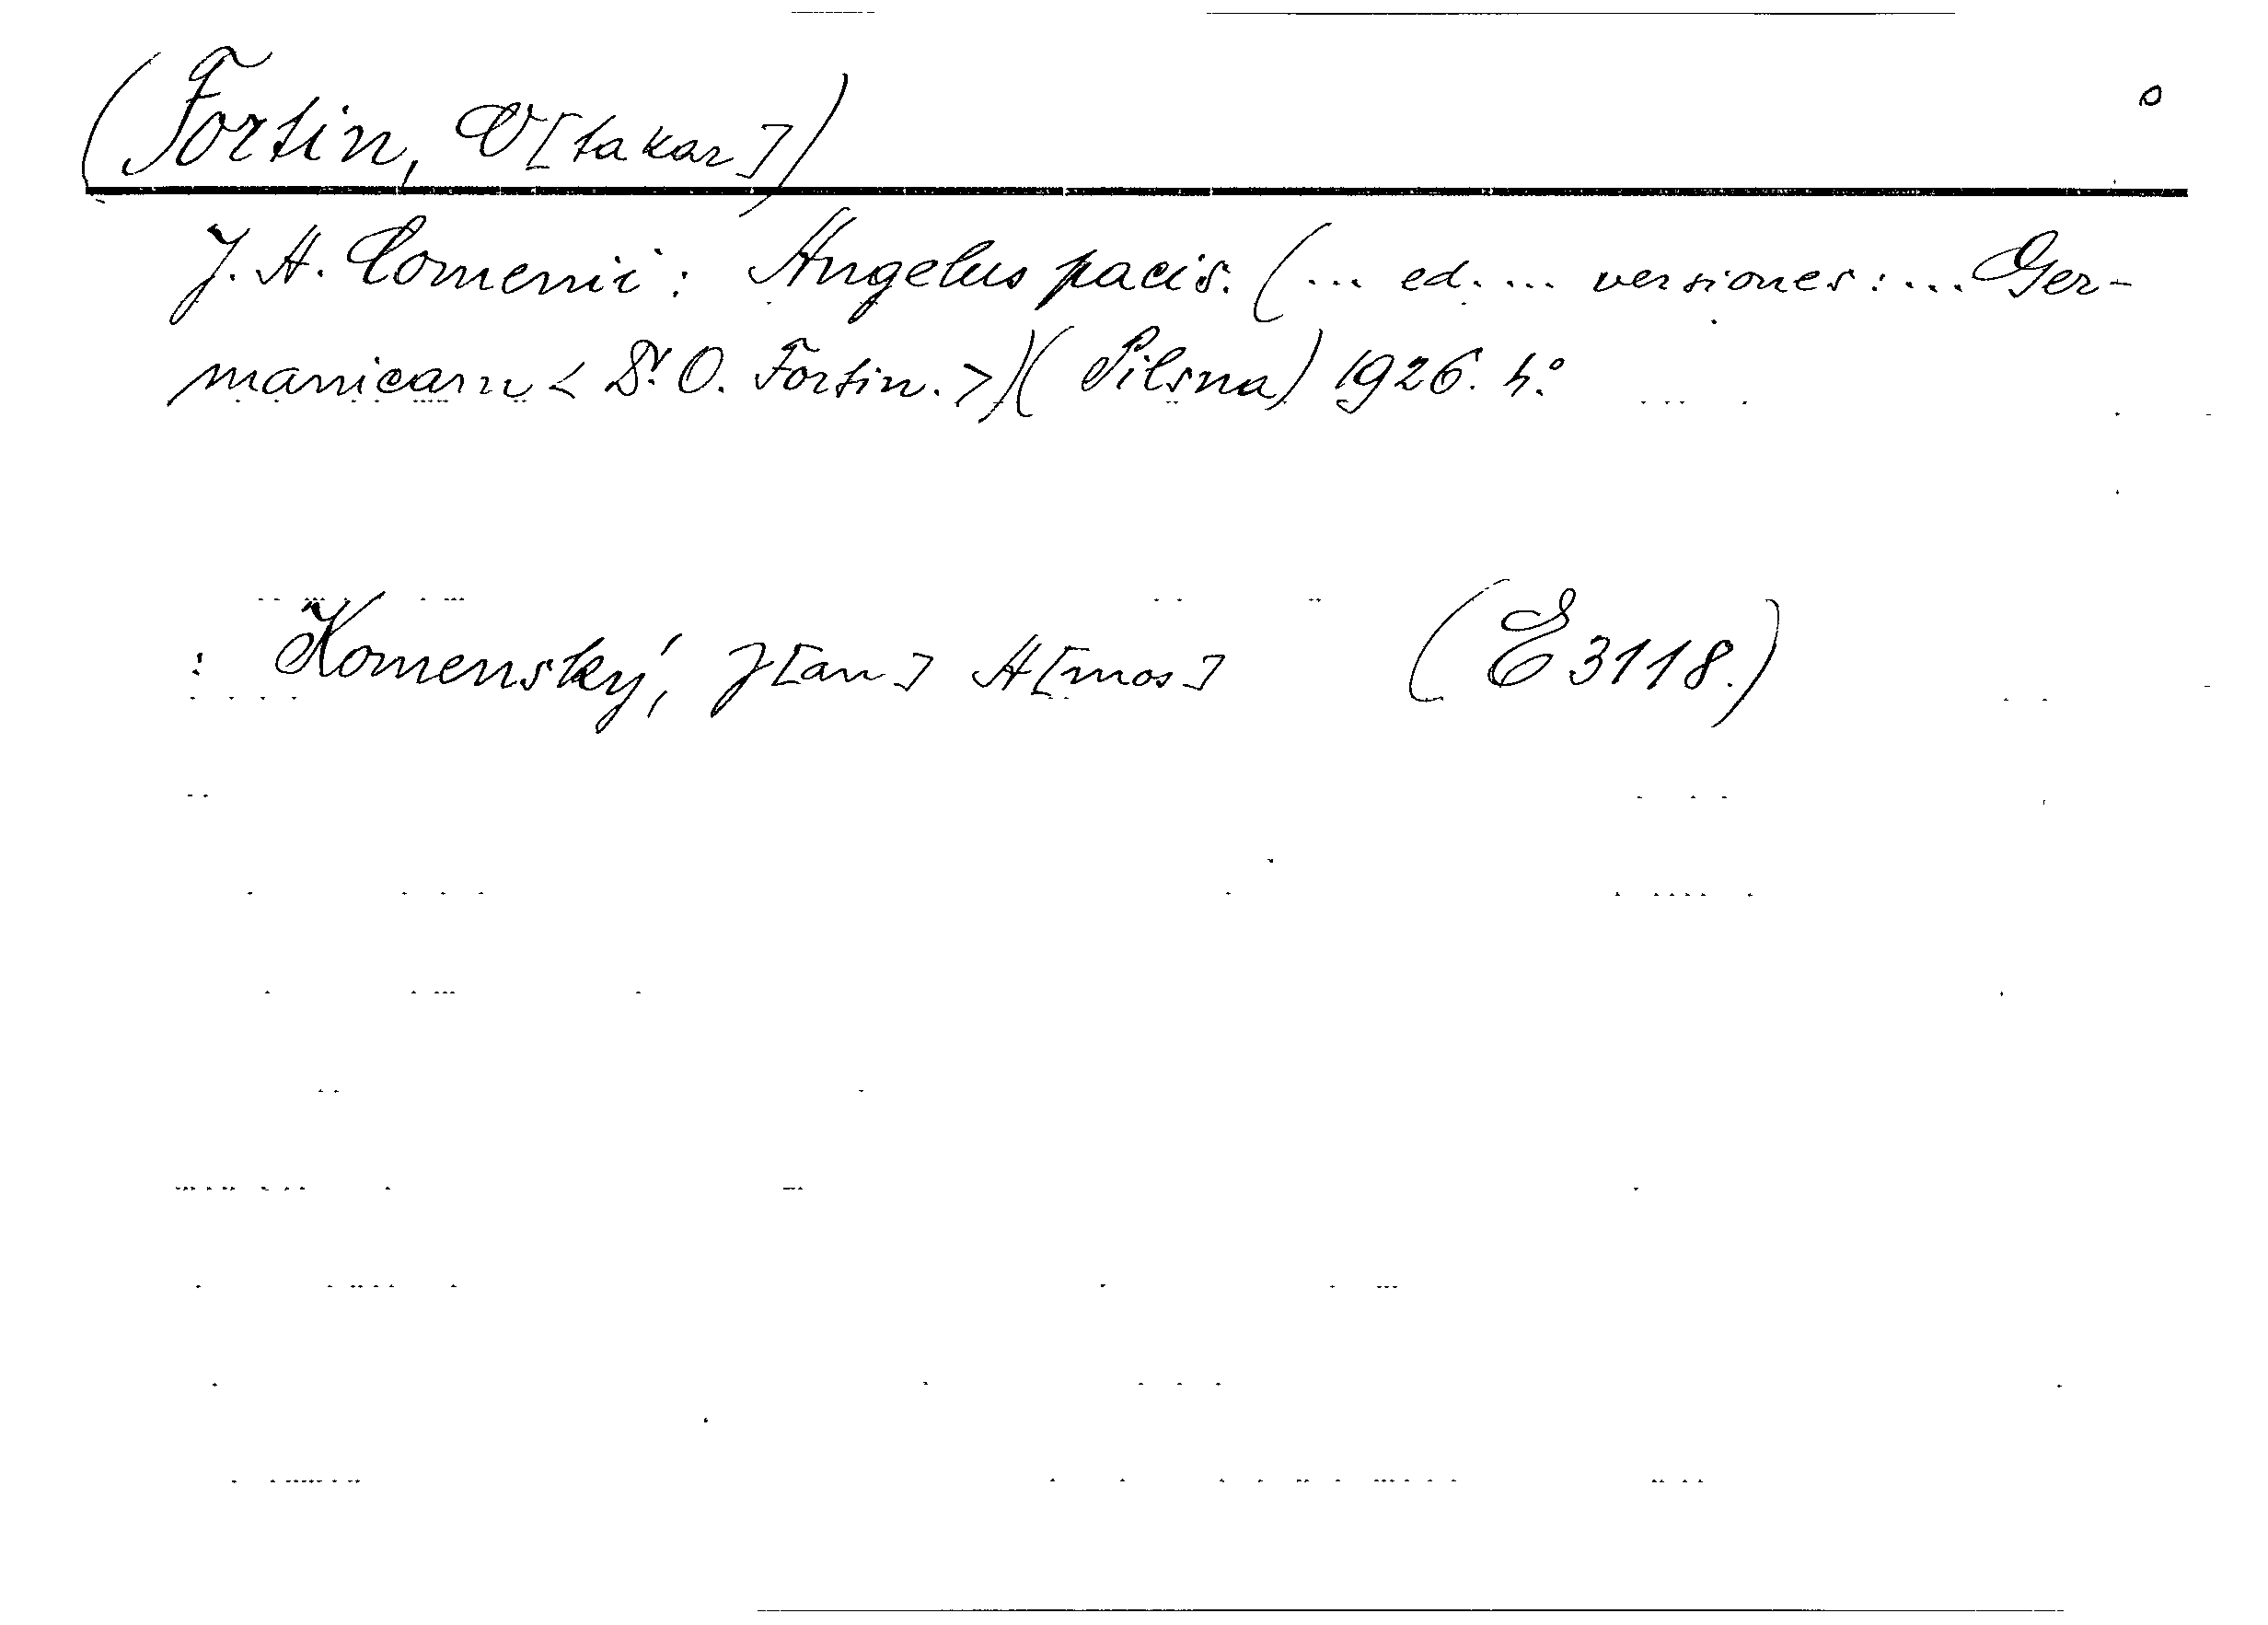 (Fortin, O[takar]) o
J. A. Comenii: Angelus pacis. (... ed. ... versiones: ... Ger-
manicam < Dr. O. Fortin. >)( Pilsna) 1926. 4.°
: Komenský, J[an] A[mos] (E 3118.)